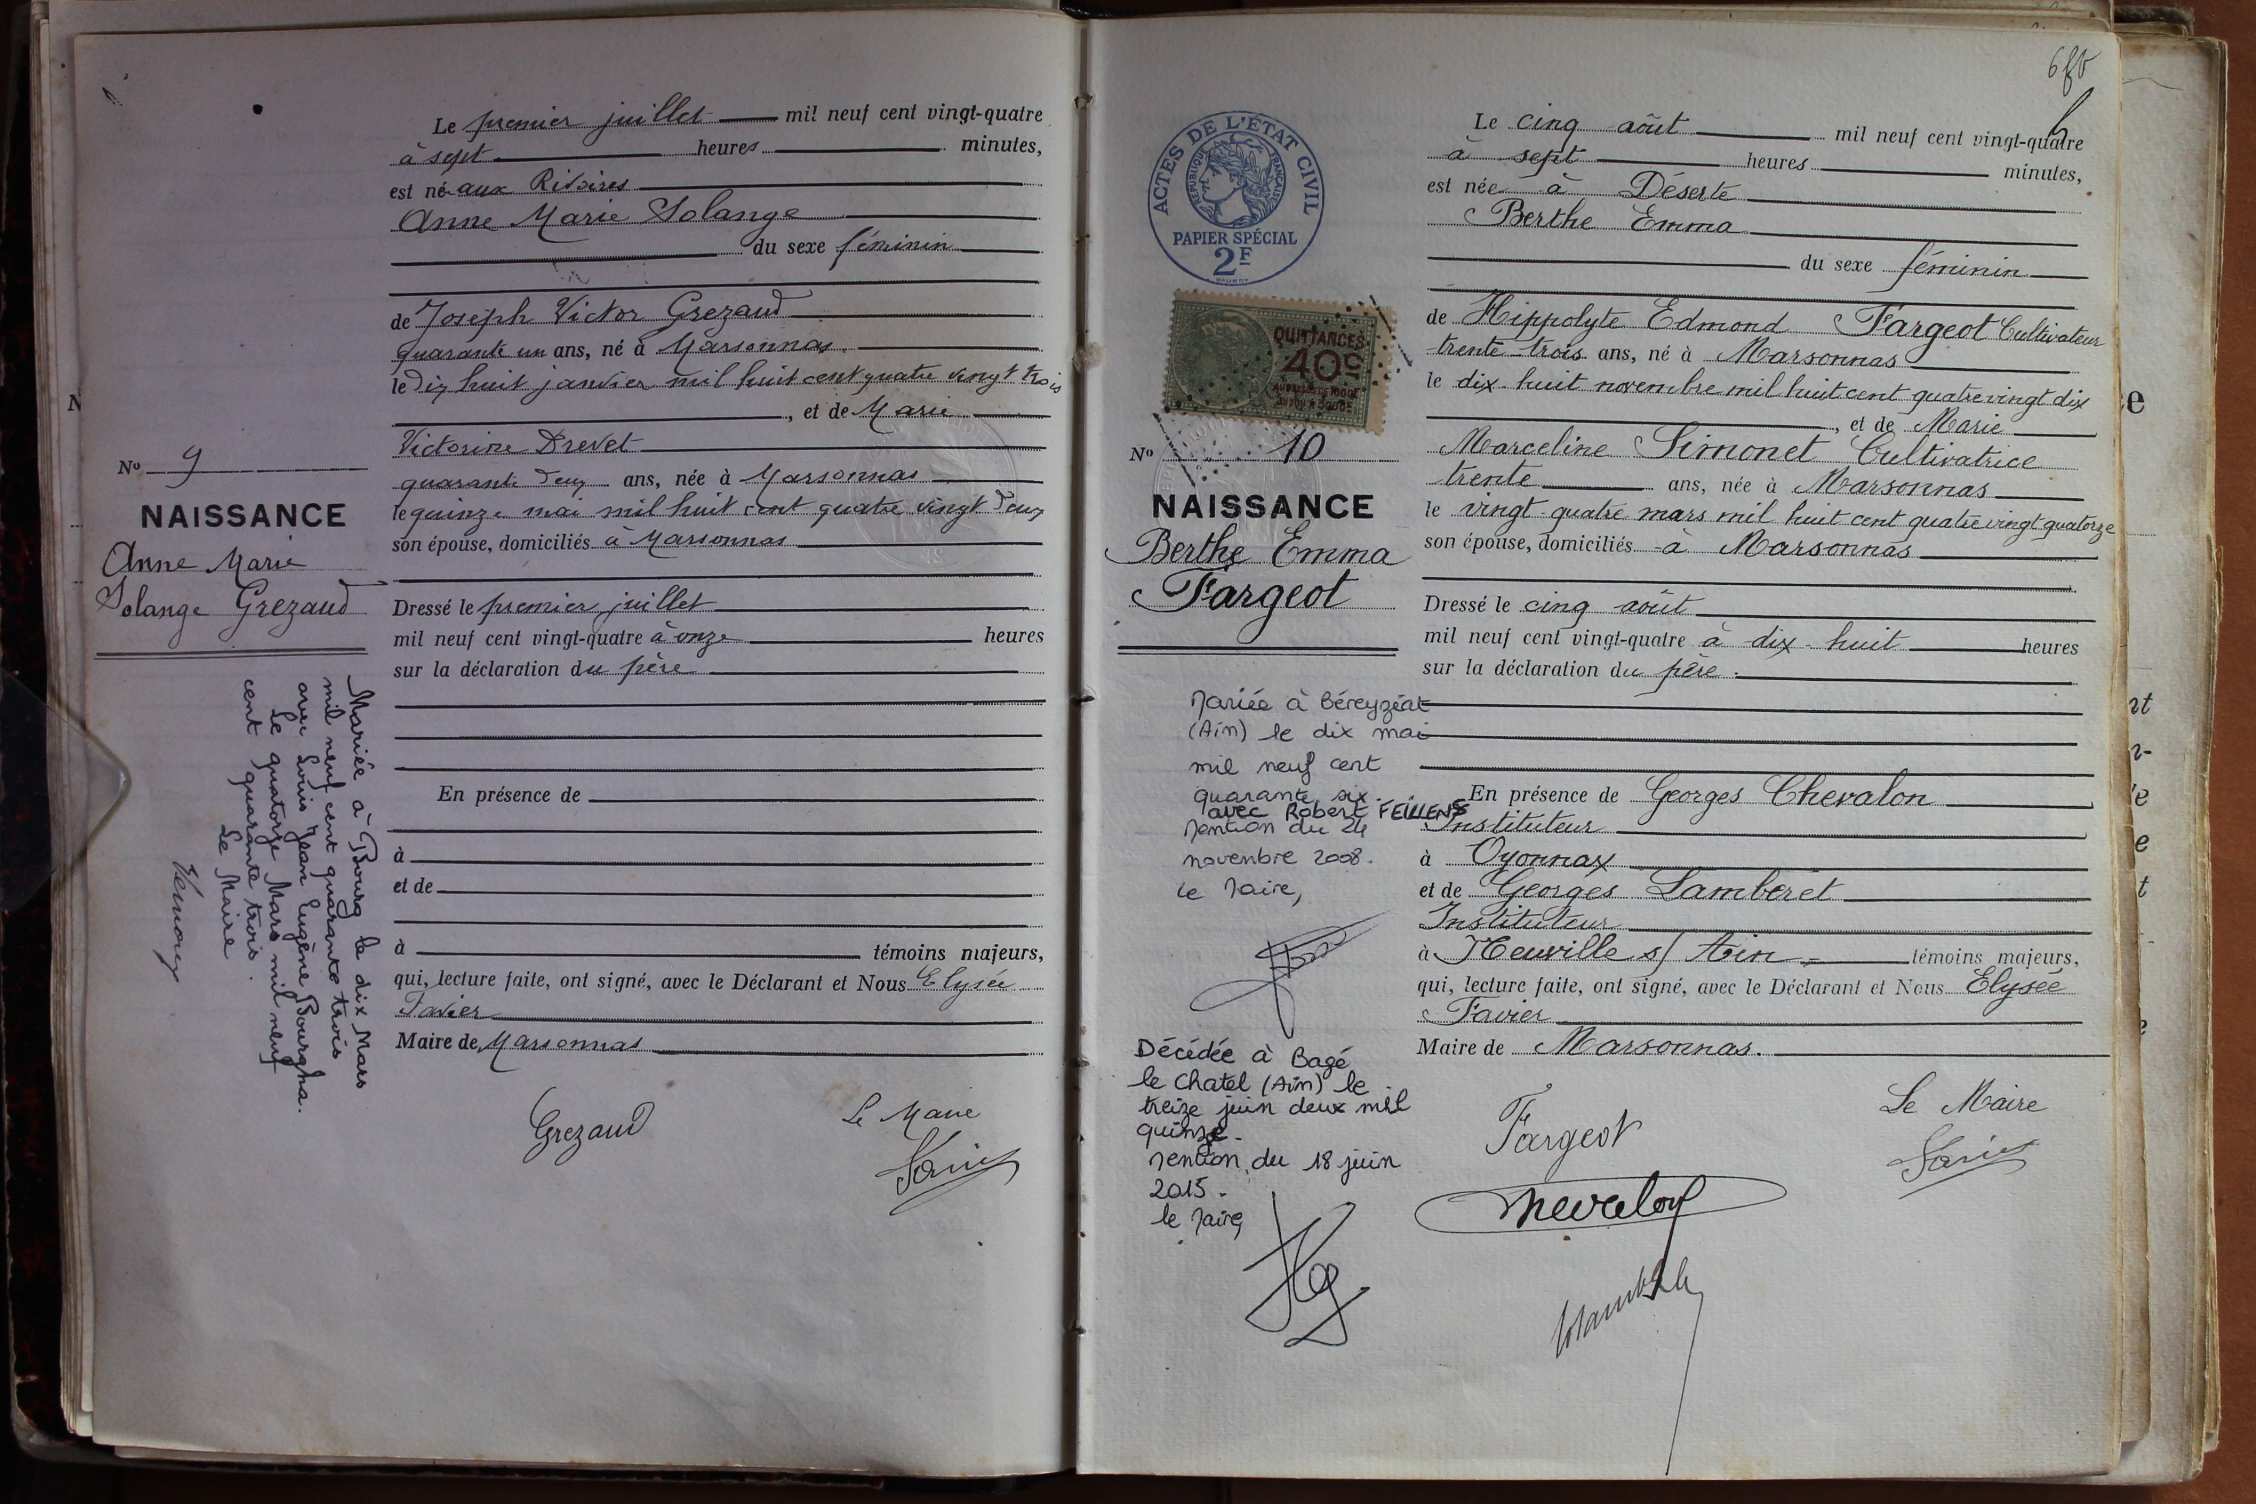 Le premier juillet mil neuf cent vingt-quatre
à sept heures minutes,
est né aux Rivoires
Anne Marie Solange
du sexe féminin
de Joseph Victor Grezaud
quarante un ans, né à Marsonnas
le dix huit janvier mil huit cent quatre vingt trois
, et de Marie
Victorine Drevet
quarante deux ans, née à Marsonnas
le quinze mai mil huit cent quatre vingt deux
son épouse, domiciliés à Marsonnas
Dressé le premier juillet
mil neuf cent vingt-quatre à onze heures
sur la déclaration du père
En présence de
à
et de
à témoins majeurs,
qui, lecture faite, ont signé, avec le Déclarant et Nous Elysée
Favier
Maire de Marsonnas
Grezaud
Le Maire
Favier
No 9
NAISSANCE
Anne Marie
Solange Grezaud
Mariée à Bourg le dix Mars
mil neuf cent quarante trois
avec Louis Jean Eugène Bourgha.
Le quatorze Mars mil neuf
cent quarante trois.
Le Maire
ACTES DE L'ÉTAT CIVIL
RÉPUBLIQUE FRANÇAISE
PAPIER SPÉCIAL
2F
QUITTANCES
40c
No 10
NAISSANCE
Berthe Emma
Fargeot
Mariée à Béreyziat
(Ain) le dix mai
mil neuf cent
quarante six.
avec Robert FEILLENS
Mention du 24
novembre 2008.
Le Maire,
Décédée à Bagé
le Chatel (Ain) le
treize juin deux mil
quinze.
Mention du 18 juin
2015.
le Maire,
Le cinq août mil neuf cent vingt-quatre
à sept heures minutes,
est née à Déserte
Berthe Emma
du sexe féminin
de Hippolyte Edmond Fargeot Cultivateur
trente-trois ans, né à Marsonnas
le dix-huit novembre mil huit cent quatre vingt dix
, et de Marie
Marceline Simonet Cultivatrice
trente ans, née à Marsonnas
le vingt-quatre mars mil huit cent quatre vingt quatorze
son épouse, domiciliés à Marsonnas
Dressé le cinq août
mil neuf cent vingt-quatre à dix-huit heures
sur la déclaration du père.
En présence de Georges Chevalon
Instituteur
à Oyonnax
et de Georges Lamberet
Instituteur
à Neuville s/ Ain témoins majeurs,
qui, lecture faite, ont signé, avec le Déclarant et Nous Elysée
Favier
Maire de Marsonnas.
Fargeot
Le Maire
Favier